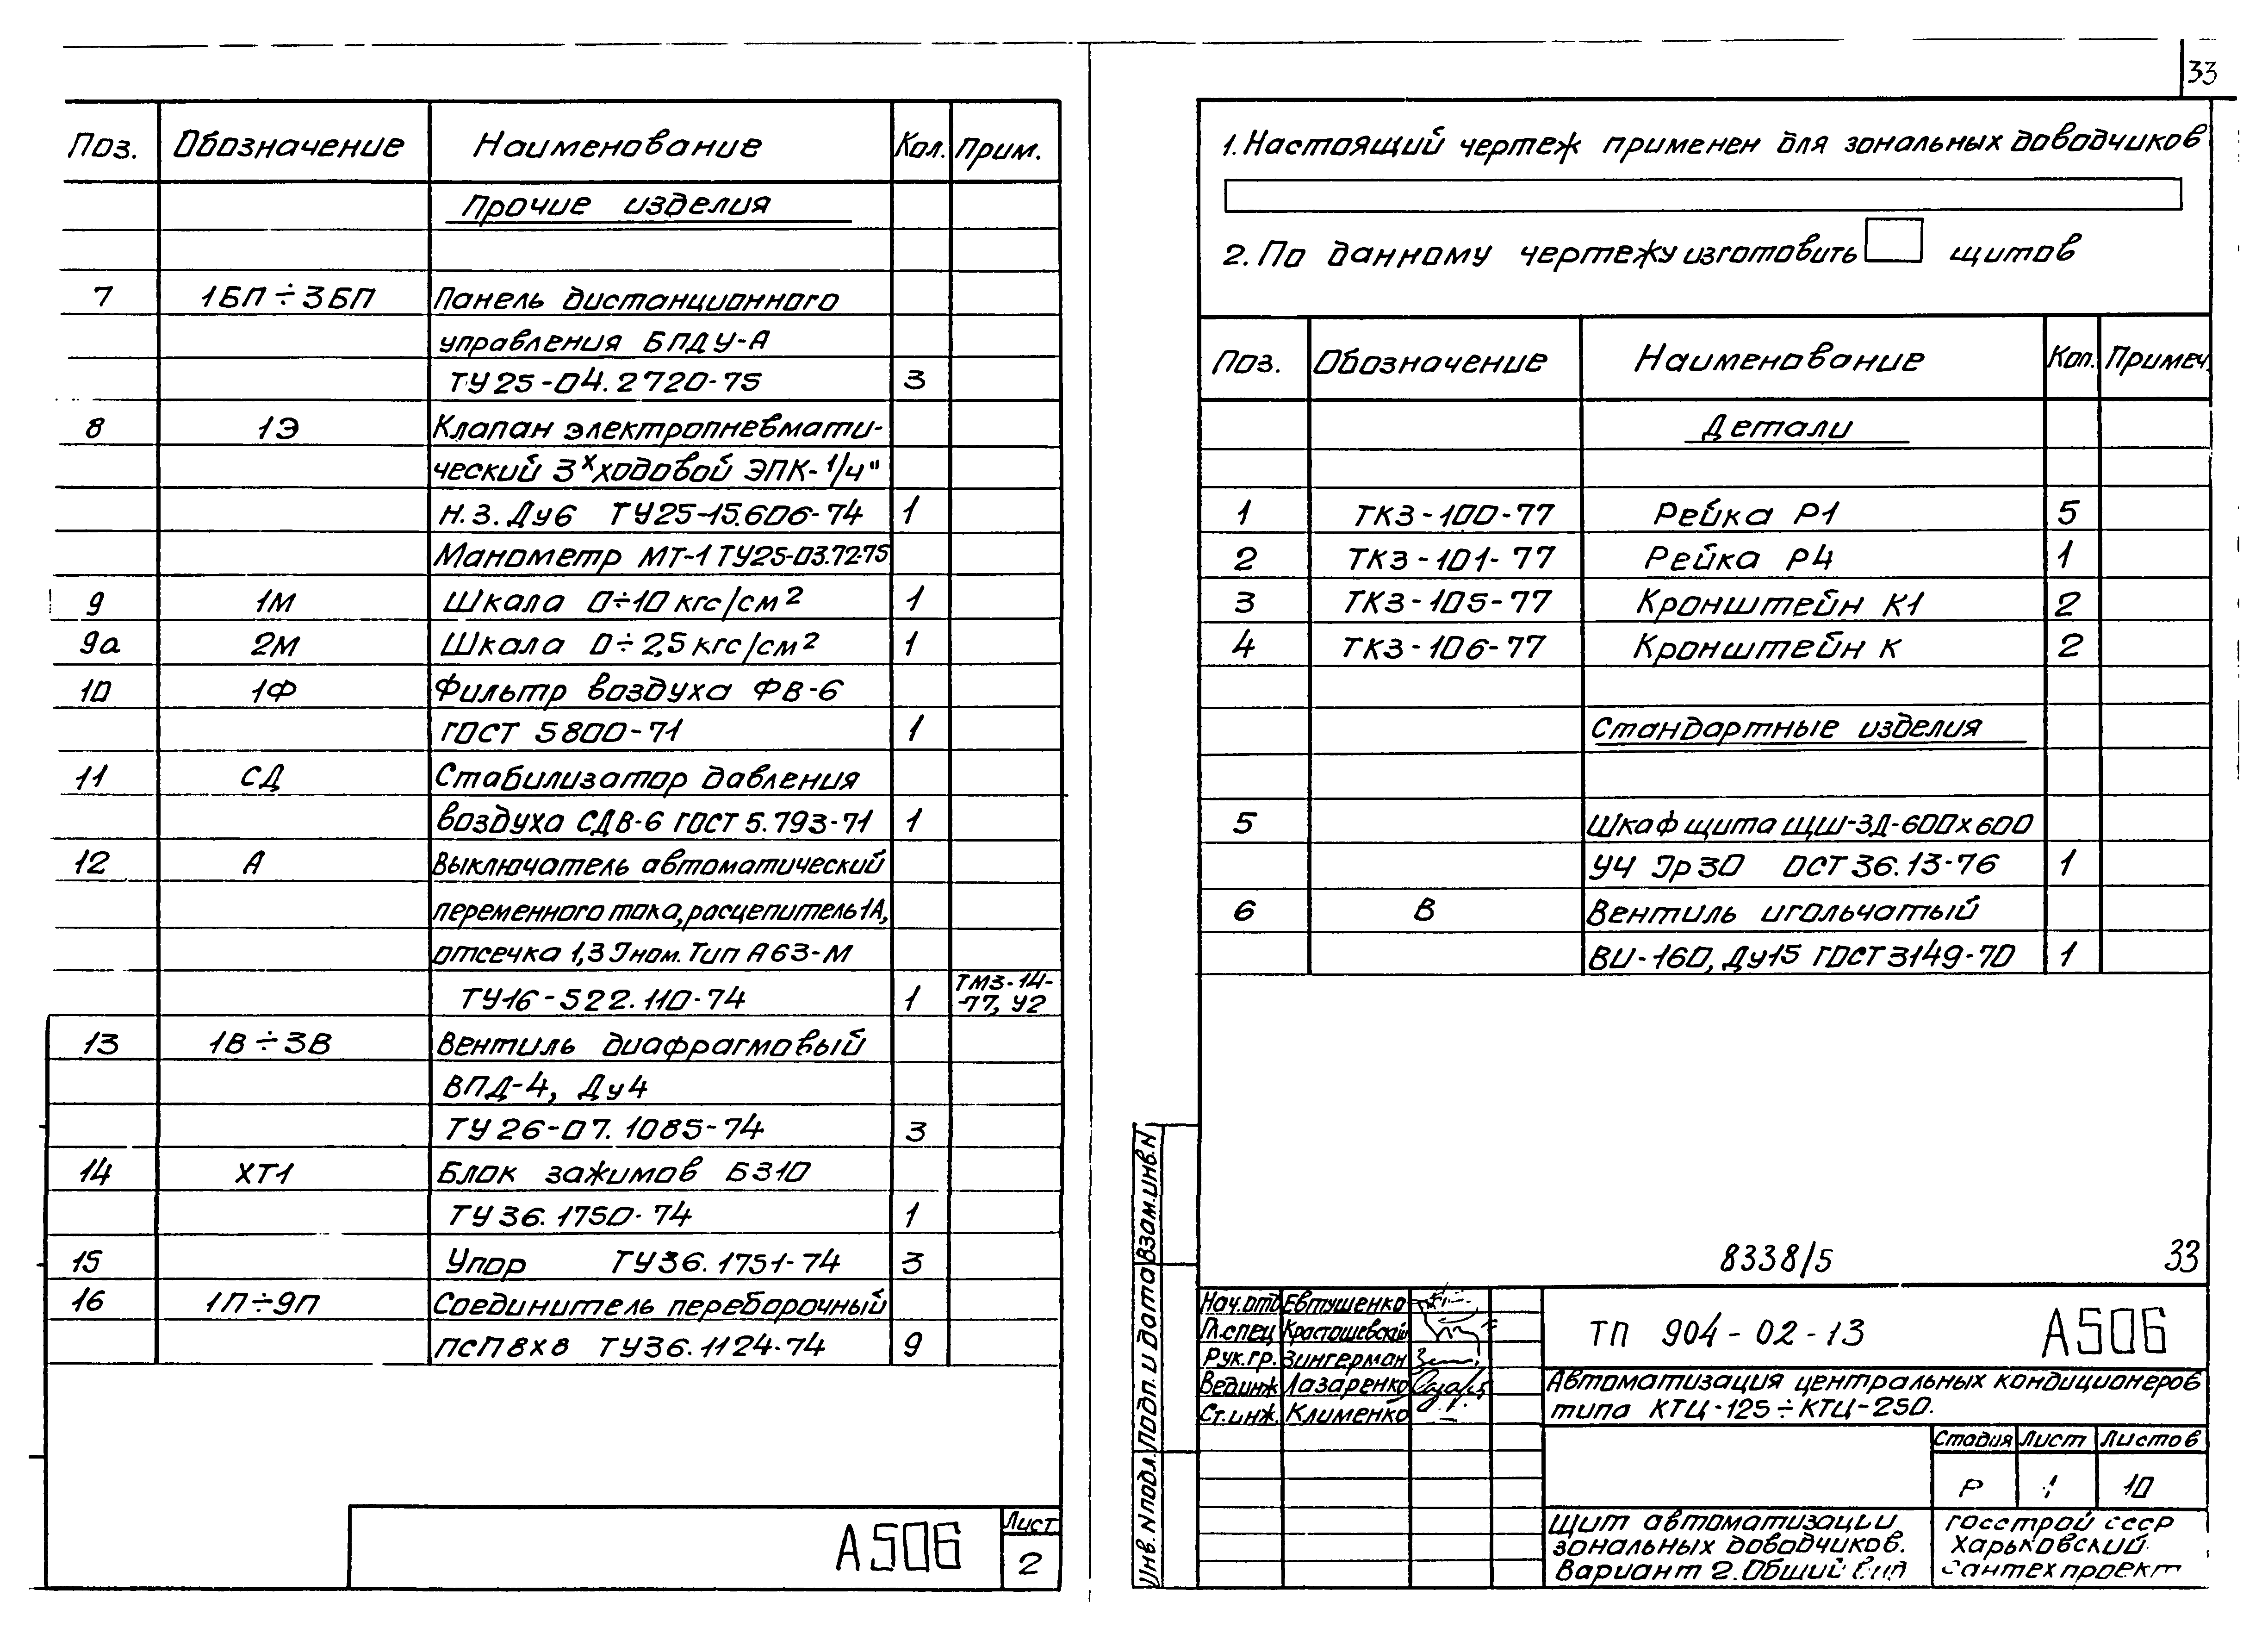 33
Поз. Обозначение Наименование Кол. Прим.
Прочие изделия
7 1БП÷3БП Панель дистанционного
управления БПДУ-А
ТУ25-04.2720-75 3
8 1Э Клапан электропневмати-
ческий 3х ходовой ЭПК-1/4"
Н.З. Ду6 ТУ25-15.606-74 1
Манометр МТ-1 ТУ25-03.72-75
9 1М Шкала 0÷10 кгс/см² 1
9а 2М Шкала 0÷2,5 кгс/см² 1
10 1Ф Фильтр воздуха ФВ-6
ГОСТ 5800-71 1
11 СД Стабилизатор давления
воздуха СДВ-6 ГОСТ 5.793-71 1
12 А Выключатель автоматический
переменного тока, расцепитель 1А,
отсечка 1,3 Iном. Тип А63-М
ТУ16-522.110-74 1 ТМ3-14-
-77, У2
13 1В÷3В Вентиль диафрагмовый
ВПД-4, Ду4
ТУ 26-07.1085-74 3
14 ХТ1 Блок зажимов БЗ10
ТУ 36.1750-74 1
15 Упор ТУ36.1751-74 3
16 1П÷9П Соединитель переборочный
ПСП8х8 ТУ36.1124-74 9
А506
Лист
2
1. Настоящий чертеж применен для зональных доводчиков
2. По данному чертежу изготовить щитов
Поз. Обозначение Наименование Кол. Примеч.
Детали
1 ТК3-100-77 Рейка Р1 5
2 ТК3-101-77 Рейка Р4 1
3 ТК3-105-77 Кронштейн К1 2
4 ТК3-106-77 Кронштейн К 2
Стандартные изделия
5 Шкаф щита ЩШ-ЗД-600х600
У4 Iр30 ОСТ 36.13-76 1
6 В Вентиль игольчатый
ВИ-160, Ду15 ГОСТ 3149-70 1
8338/5 33
Инв. N подл. Подп. и дата Взам. инв. N
Нач. отд Евтушенко
Гл. спец Красташевский
Рук. гр. Зингерман
Вед инж Лазаренко
Ст. инж. Клименко
ТП 904-02-13 А506
Автоматизация центральных кондиционеров
типа КТЦ-125÷КТЦ-250.
Стадия Лист Листов
Р 1 10
Щит автоматизации
зональных доводчиков.
Вариант 2. Общий вид
Госстрой СССР
Харьковский
Сантехпроект